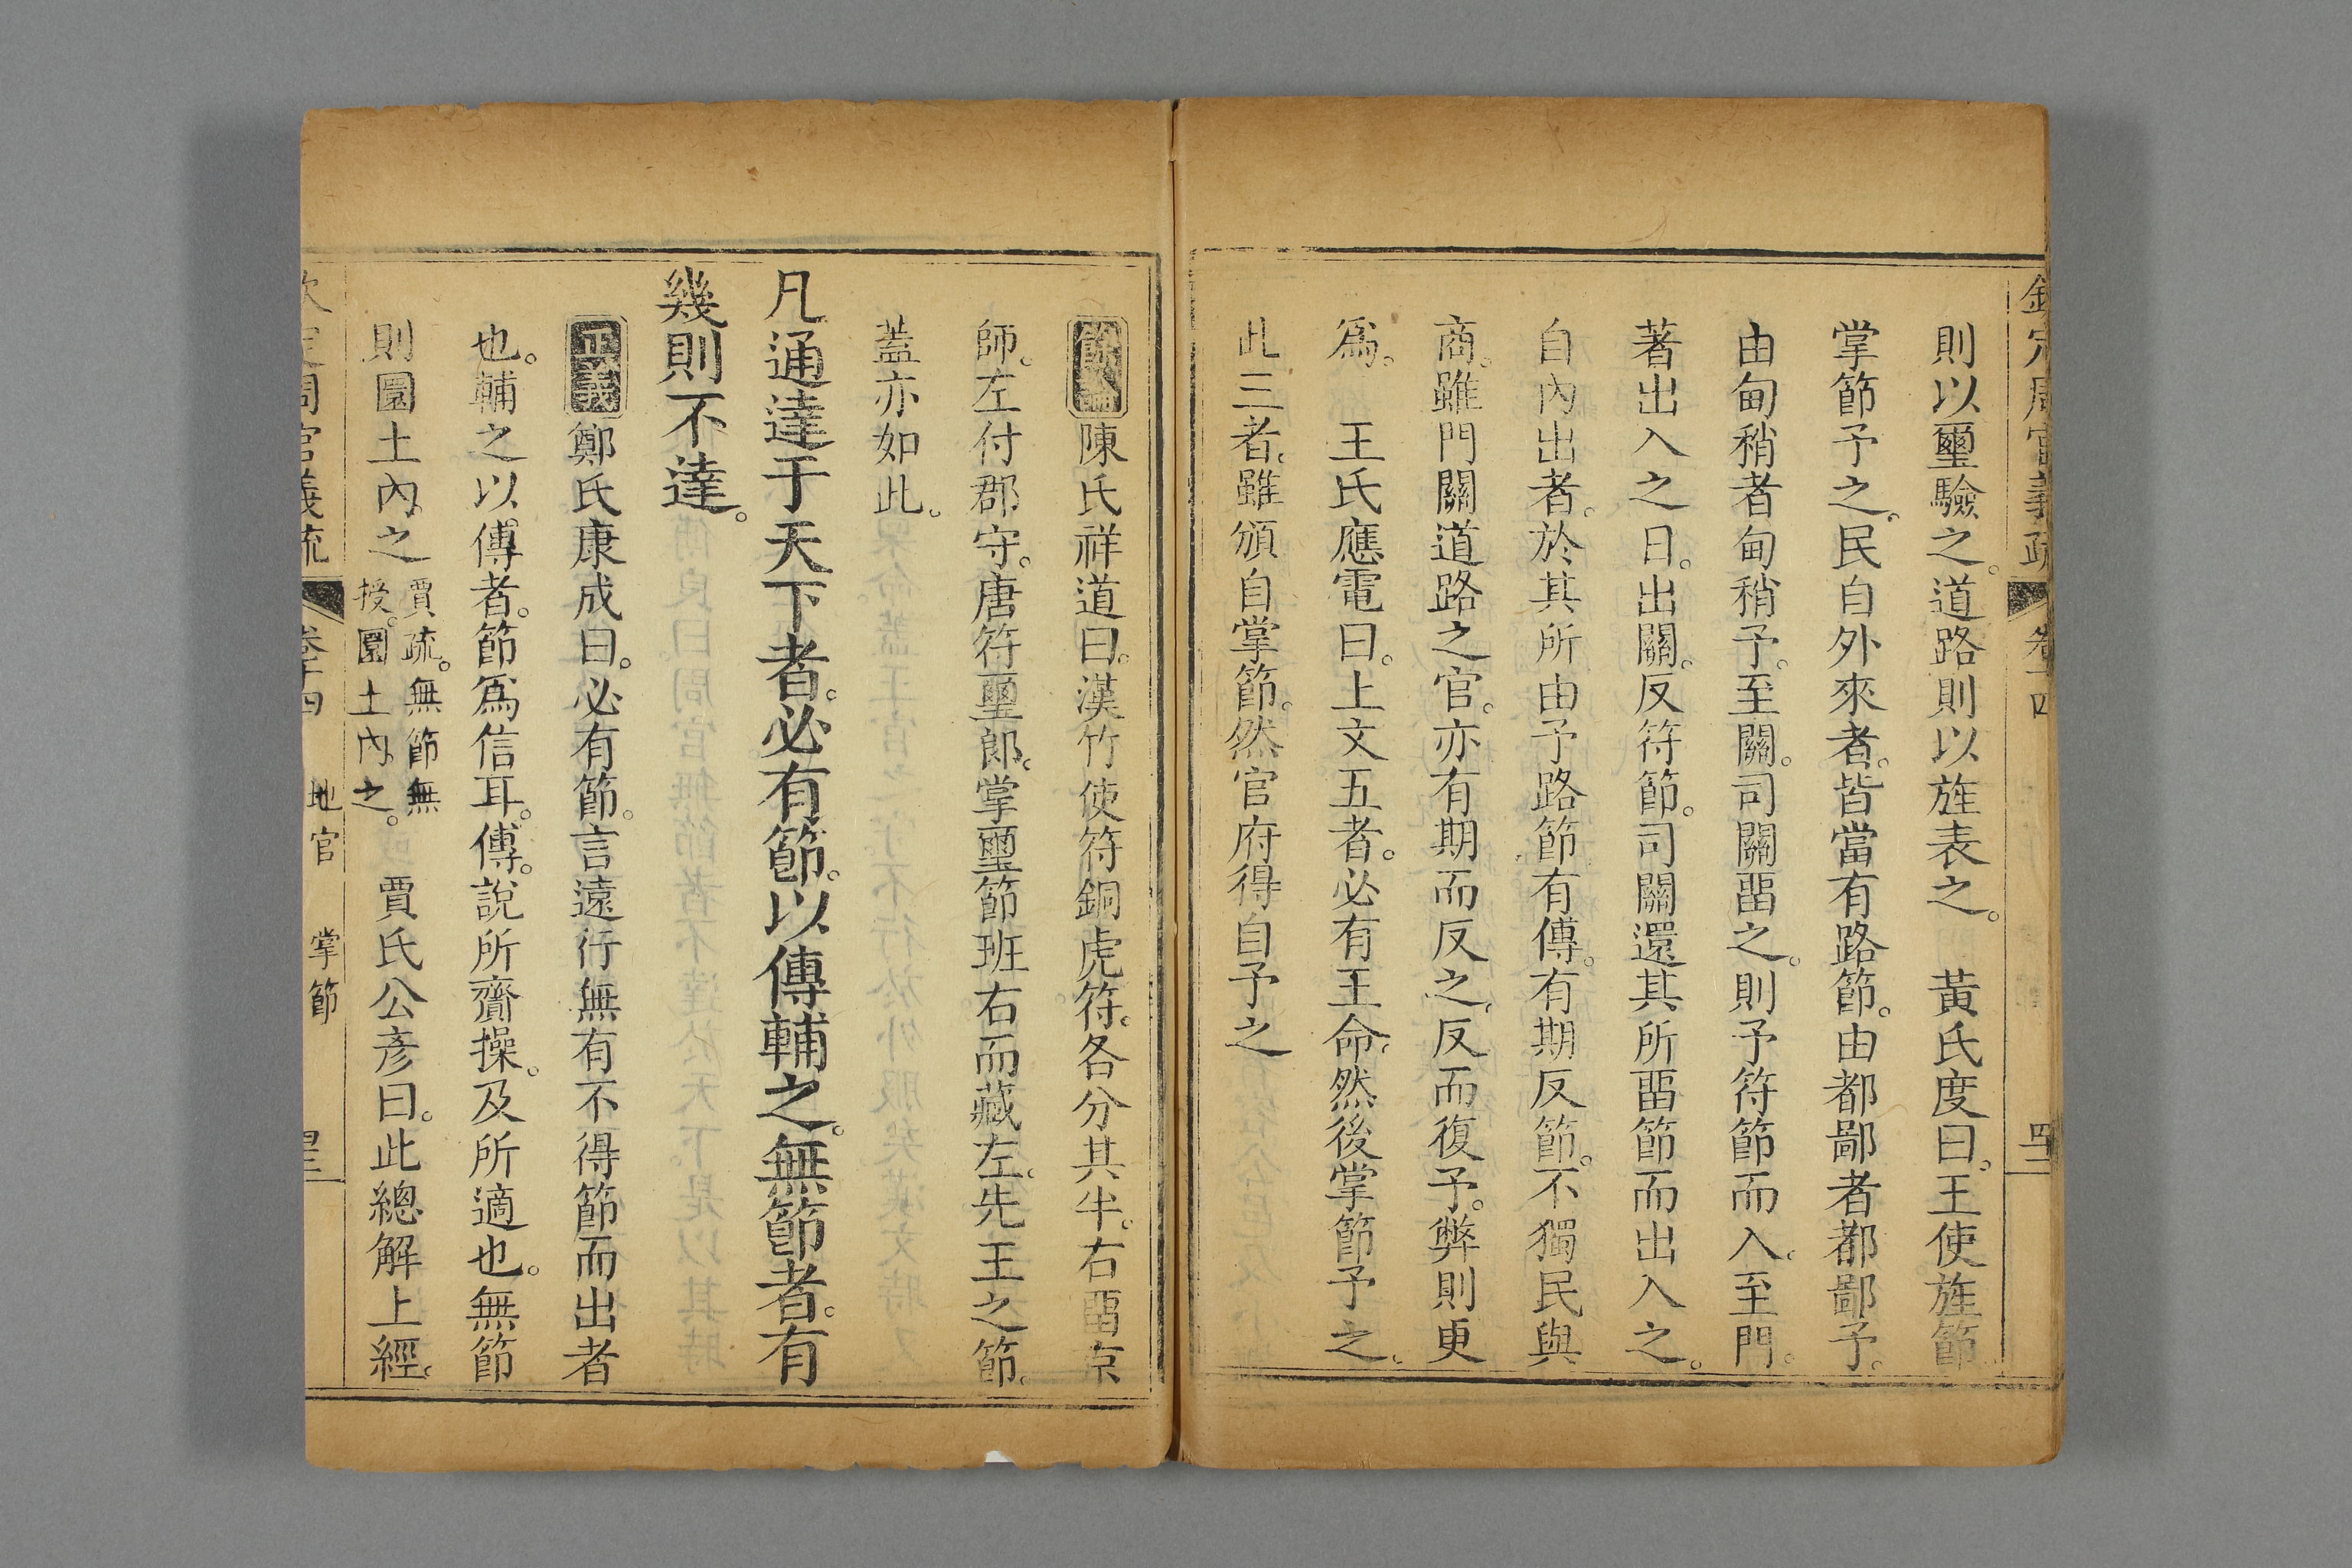 欽定周官義疏 卷十四 四十二
則以璽驗之。道路則以旌表之。 黃氏度曰。王使旌節
掌節予之。民自外來者。皆當有路節。由都鄙者都鄙予。
由甸稍者甸稍予。至關。司關畱之。則予符節而入。至門。
著出入之日。出關。反符節。司關還其所畱節而出入之。
自內出者。於其所由予路節。有傳。有期反節。不獨民與
商。雖門關道路之官。亦有期而反之。反而復予。弊則更
爲。 王氏應電曰。上文五者。必有王命。然後掌節予之。
此三者。雖頒自掌節。然官府得自予之
餘論 陳氏祥道曰。漢竹使符銅虎符。各分其半。右畱京
師。左付郡守。唐符璽郎。掌璽節班右而藏左。先王之節。
蓋亦如此。
凡通達于天下者。必有節。以傳輔之。無節者。有
幾則不達。
正義 鄭氏康成曰。必有節。言遠行無有不得節而出者
也。輔之以傳者。節爲信耳。傳。說所齎操。及所適也。無節
則圜土內之 賈疏。無節無授。圜土內之。 賈氏公彥曰。此總解上經。
欽定周官義疏 卷十四 地官 掌節 四十三